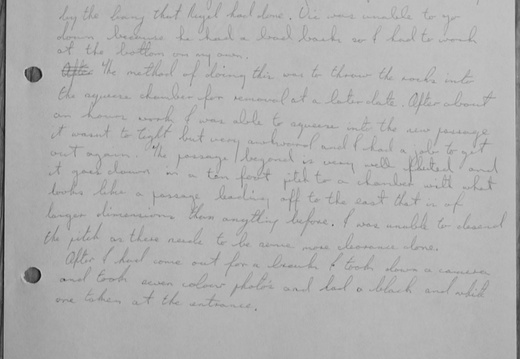 by the living that legal had done. Vic was unable to go
down because he had a bad back so I had to work
at the bottom on my own.
After The method of doing this was to throw the rocks into
the squeeze chamber for removal at a later date. After about
an hours work I was able to squeeze into the new passage
it wasnt to tight but very awkward and I had a job to get
out again. The passage beyond is very well fluted and
it goes down in a ten foot pitch to a chamber with what
looks like a passage leading off to the east that is of
larger dimensions than anything before. I was unable to descend
the pitch as there needs to be some more clearance done.
After I had come out for a break I took down a camera
and took seven colour photos and had a black and whit
one taken at the entrance.